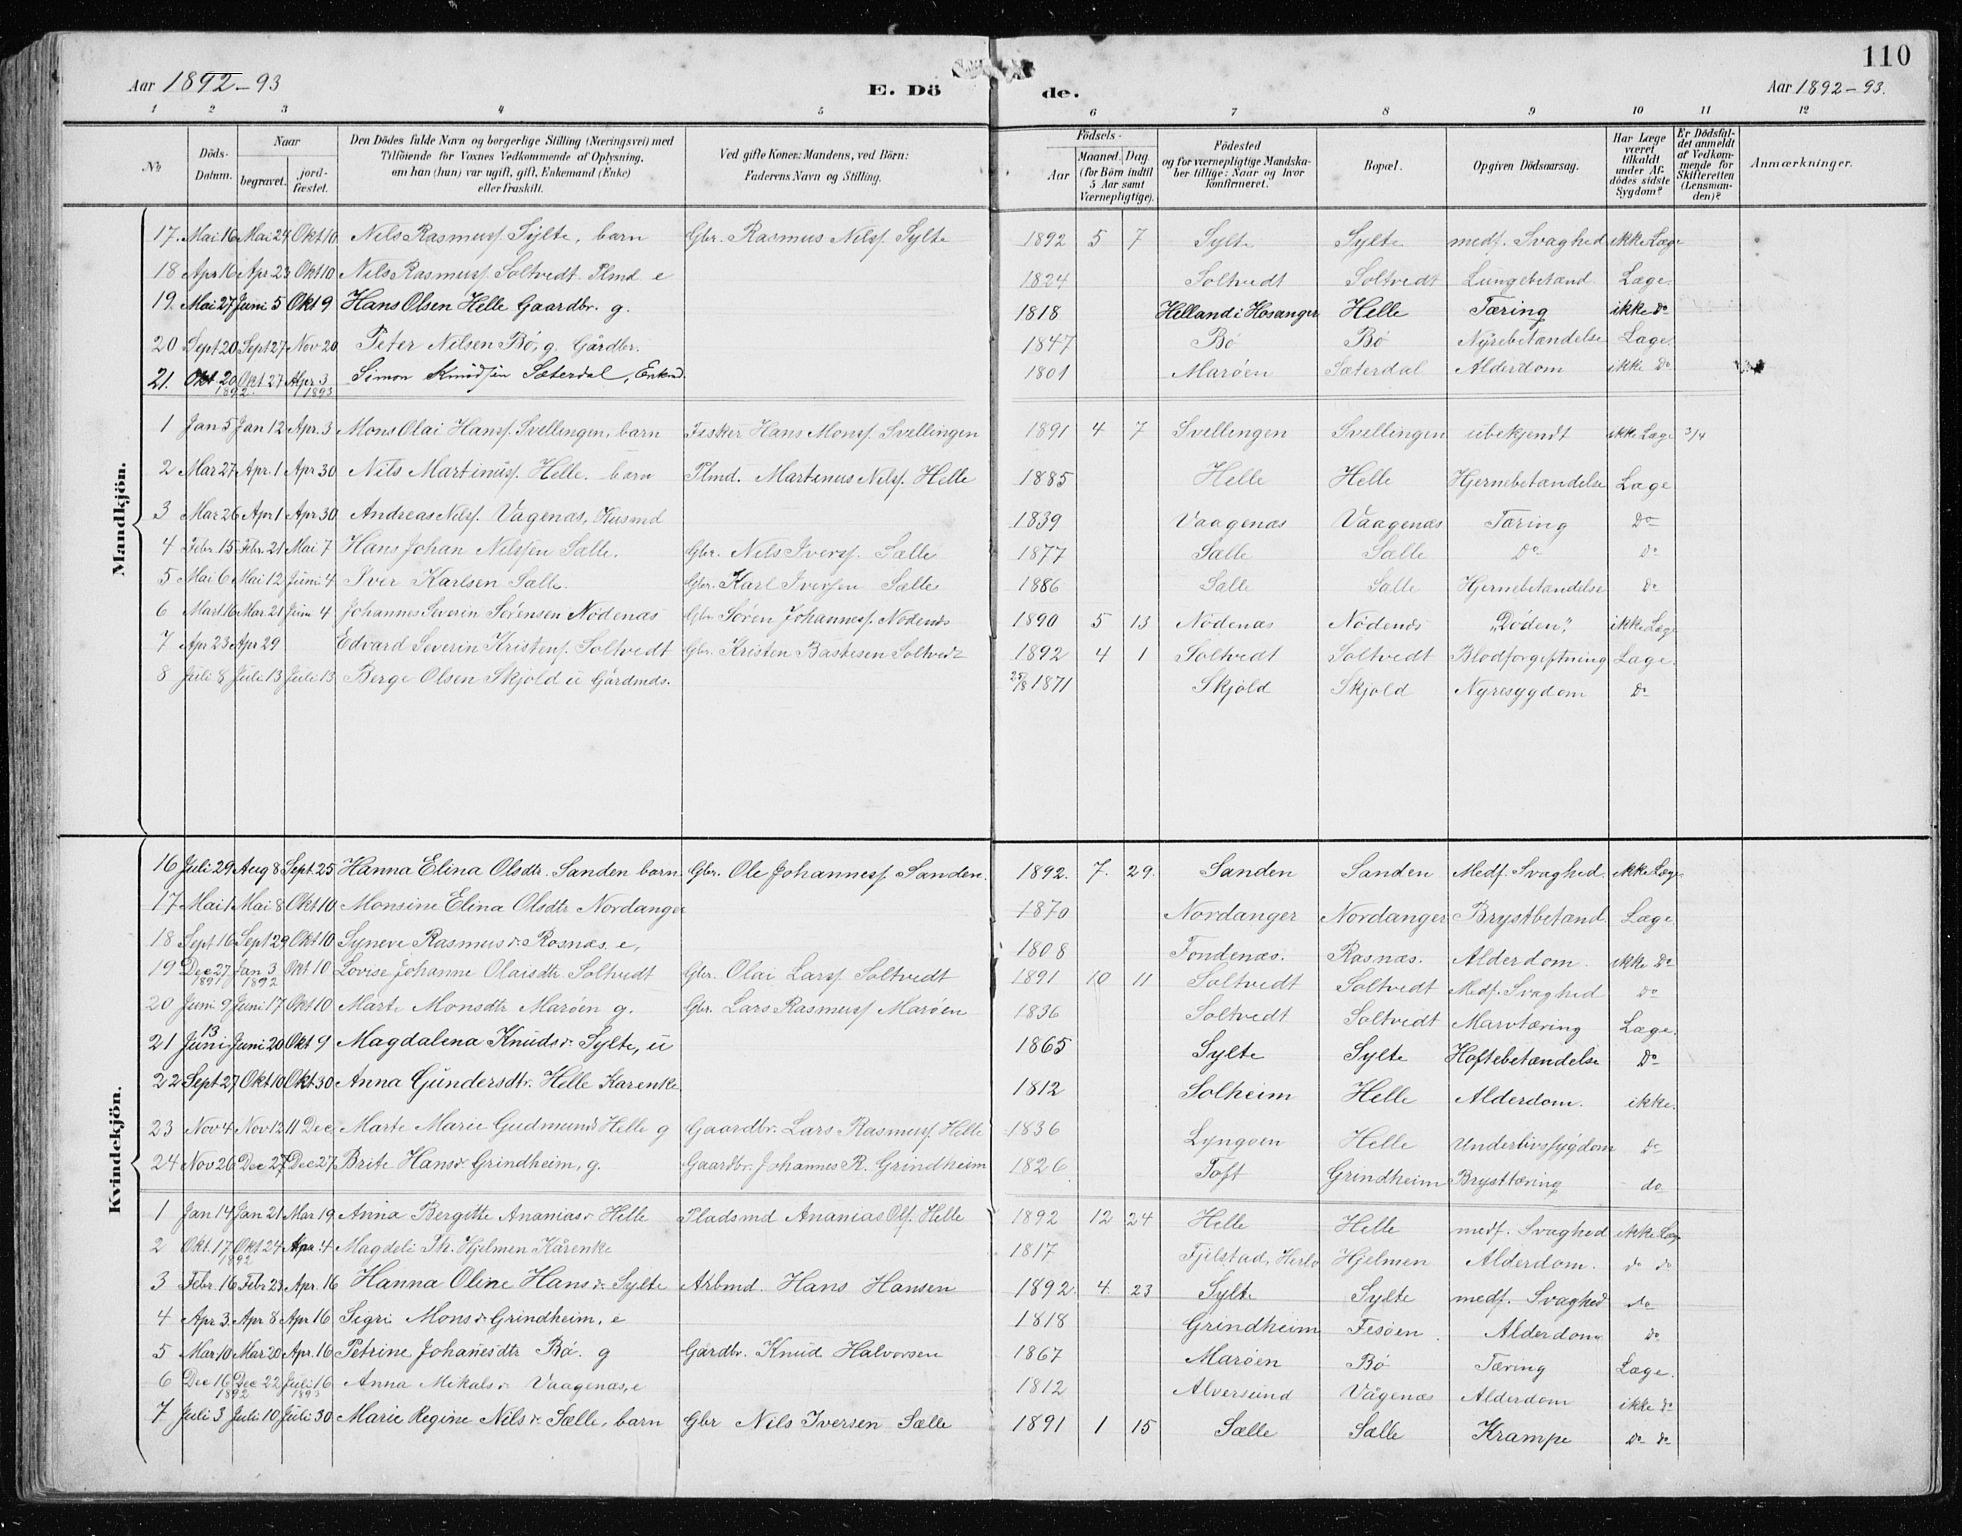 110
Aar 1892-93
E. Dö de.
Aar 1892-93.
1 2 3 4 5 6 7 8 9 10 11 12
№
Döds-Datum.
Naar begravet. jordfæstet.
Den Dödes fulde Navn og borgerlige Stilling (Næringsvei) med Tilföiende for Voxnes Vedkommende af Oplysning, om han (hun) var ugift, gift, Enkemand (Enke) eller fraskilt.
Ved gifte Koner: Mandens, ved Börn: Faderens Navn og Stilling.
Födsels- Aar Maaned. Dag. (for Börn indtil 5 Aar samt Værnepligtige).
Födested og for værnepligtige Mandskaber tillige: Naar og hvor konfirmeret.
Bopæl.
Opgiven Dödsaarsag.
Har Læge været tilkaldt under Afdödes sidste Sygdom?
Er Dödsfaldet anmeldt af Vedkommende for Skifteretten (Lensmanden)?
Anmærkninger.
Mandkjön.
17. Mai 16 Mai 24 Okt 10 Nils Rasmusf. Sylte, barn Gbr. Rasmus Nilsf. Sylte 1892 5 7 Sylte Sylte medf. Svaghed ikke Læge
18 Apr 16 Apr. 23 Okt 10 Nils Rasmusf. Soltvedt Plmd e 1824 Soltvedt Soltvedt Lungebetænd Læge.
19. Mai 27 Juni 5 Okt 9 Hans Olsen Helle Gaardbr. g. 1818 Helland i Hosanger Helle Tæring ikke do
20 Sept 20 Sept 27 Nov 20 Peter Nilsen Bö, g. Gårdbr. 1847 Bö Bö Nyrebetændelse Læge.
21. Okt 20 1892 Okt. 27 Apr. 3 1893 Simon Knudsen Sæterdal, Enkmd 1801 Maröen Sæterdal Alderdom ikke do
1 Jan 5 Jan 12 Apr. 3 Mons Olai Hansf. Svellingen, barn Fisker Hans Monsf. Svellingen 1891 4 7 Svellingen Svellingen ubekjendt ikke Læge 3/4
2 Mar 27 Apr. 1 Apr 30 Nils Martinusf. Helle. barn Plmd. Martinus Nilsf. Helle 1885 Helle Helle Hjernebetændelse Læge
3 Mar 26 Apr 1 Apr 30 Andreas Nilsf. Vågenæs, Husmd 1839 Vaagenæs Vaagenæs Tæring do
4 Febr. 15 Febr. 21 Mai 7 Hans Johan Nilssen Sælle. Gbr. Nils Iversf. Sælle 1877 Sælle Sælle do do
5 Mai 6 Mai 12 Juni 4 Iver Karlsen Sælle. Gbr. Karl Iversen Sælle 1886 Sælle Sælle Hjernebetændelse do
6 Mart 16 Mar 21 Juni 4 Johannes Severin Sörensen Nödenæs Gbr. Sören Johannesf. Nödenæs 1890 5 13 Nödenæs Nödenæs „Döden“. ikke Læge
7 Apr 23 Apr 29 Edvard Severin Kristensf. Soltvedt Gbr. Kristen Bastesen Soltvedt 1892 4 1 Soltvedt Soltvedt Blodforgiftning Læge.
8 Juli 8 Juli 13 Juli 13 Berge Olsen Skjold u Gårdmds. 25/8 1871 Skjold Skjold Nyresygdom do
Kvindekjön.
16 Juli 29 Aug 8 Sept. 25 Hanna Elina Olsdtr. Sanden barn Gbr. Ole Johannesf. Sanden. 1892. 7. 29. Sanden Sanden Medf. Svaghed. ikke Læge
17 Mai 1 Mai 8 Okt 10 Monsine Elina Olsdtr Nordanger 1870 Nordanger Nordanger Brystbetænd. Læge
18 Sept 16 Sept 29 Okt 10 Syneve Rasmusdr Rosnæs e, 1808 Fondenæs. Rasnæs. Alderdom. ikke do
19 Dec 27 1891 Jan 3 1892 Okt 10 Lovise Johanne Olaisdtr. Soltvedt Gbr. Olai Larsf Soltvedt 1891 10 11 Soltvedt Soltvedt Medf. Svaghed do
20 Juni 9 Juni 17 Okt 10 Marte Monsdtr Maröen g. Gbr. Lars Rasmusf Maröen 1836 Soltvedt Soltvedt Marvtæring Læge.
21 Juni 13 Juni 20 Okt 9 Magdalena Knudsdr Sylte, u 1865 Sylte Sylte Hoftebetændelse do
22 Sept 27 Okt 10 Okt 30 Anna Gundersdtr. Helle Kårenke 1812 Solheim Helle Alderdom. ikke.
23 Nov 4 Nov 12 11 Dec Marte Marie Gudmunds Helle g Gaardbr. Lars Rasmusf. Helle 1836 Lyngøen Helle Underlivssygdom do
24 Nov 26 Dec 27 Dec 27 Brite Hansdr Grindheim, g. Gaardbr. Johannes R. Grindheim 1826 Toft Grindheim Brysttæring do
1 Jan 14 Jan 21 Mar 19 Anna Bergitte Ananiasdr Helle Pladsmd Ananias Olf. Helle 1892 12 24 Helle Helle medf. Svaghed ikke Læge
2 Okt. 17 1892 Okt 24 Apr. 4 Magdeli Th. Hjelmen Kårenke 1817 Fjelstad, Herlö Hjelmen Alderdom. do do
3 Febr 16 Febr 23 Apr. 16 Hanna Oline Hansdr Sylte Arbmd. Hans Hansen 1892. 4. 23 Sylte Sylte medf. Svaghed do
4 Apr 3 Apr 8 Apr 16 Sigri Monsdr Grindheim, e 1818 Grindheim Fesöen. Alderdom do
5 Mar 10 Mar 20 Apr. 16 Petrine Johansdtr Bö. g Gårdbr. Knud Halvorsen 1867 Maröen Bö Tæring Læge.
6 Dec 16 1892 Dec 22 Juli 16 1893 Anna Mikalsdr Vaagenæs, e 1812 Alversund Vågenæs Alderdom ikke do
7 Juli 3 Juli 10 Juli 30 Marie Regine Nilsdr Sælle, barn Gbr Nils Iversen Sælle 1891 1 15 Sælle Sælle Krampe do do